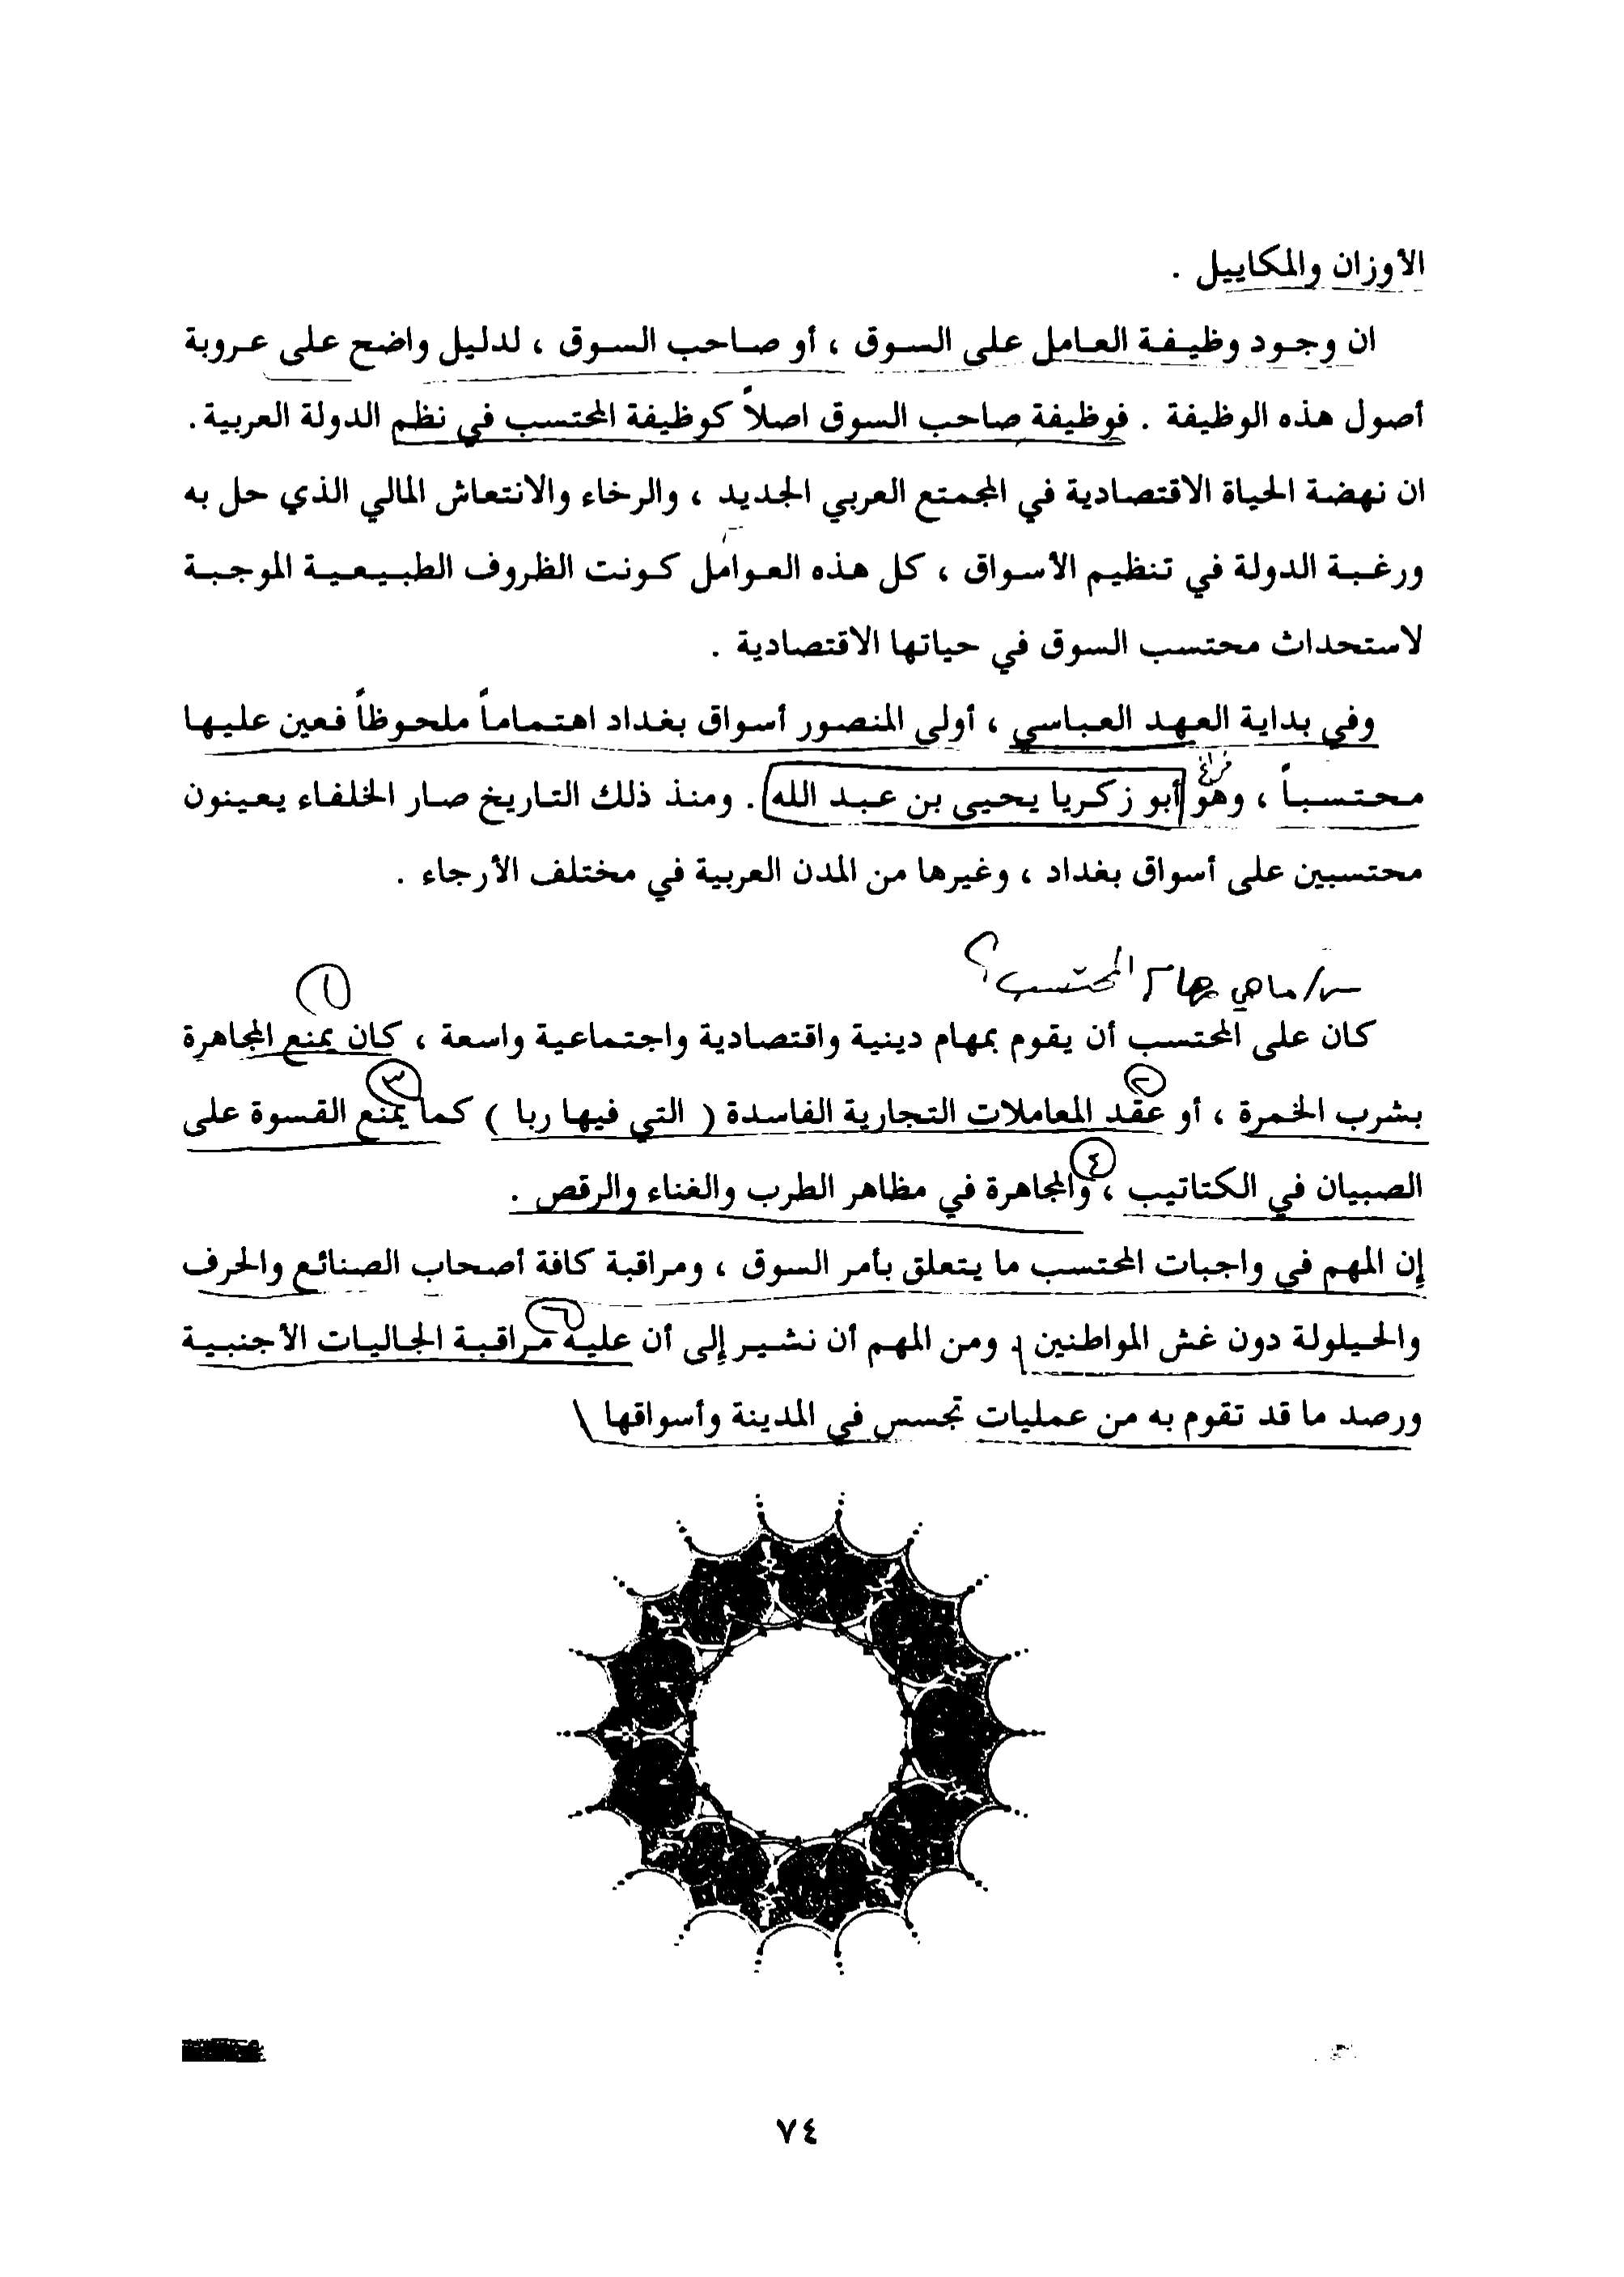 الأوزان والمكاييل .
ان وجود وظيفة العامل على السوق ، أو صاحب السوق ، لدليل واضح على عروبة
أصول هذه الوظيفة . فوظيفة صاحب السوق اصلاً كوظيفة المحتسب في نظم الدولة العربية .
ان نهضة الحياة الاقتصادية في المجمتع العربي الجديد ، والرخاء والانتعاش المالي الذي حل به
ورغبة الدولة في تنظيم الأسواق ، كل هذه العوامل كونت الظروف الطبيعية الموجبة
لاستحداث محتسب السوق في حياتها الاقتصادية .
وفي بداية العهد العباسي ، أولى المنصور أسواق بغداد اهتماماً ملحوظاً فعين عليها
محتسباً ، وهو أبو زكريا يحيى بن عبد الله . ومنذ ذلك التاريخ صار الخلفاء يعينون
محتسبين على أسواق بغداد ، وغيرها من المدن العربية في مختلف الأرجاء .
س/ ماهي مهام المحتسب؟
١
كان على المحتسب أن يقوم بمهام دينية واقتصادية واجتماعية واسعة ، كان يمنع المجاهرة
٢ ٣
بشرب الخمرة ، أو عقد المعاملات التجارية الفاسدة ( التي فيها ربا ) كما يمنع القسوة على
٤
الصبيان في الكتاتيب ، والمجاهرة في مظاهر الطرب والغناء والرقص .
إن المهم في واجبات المحتسب ما يتعلق بأمر السوق ، ومراقبة كافة أصحاب الصنائع والحرف
٦
والحيلولة دون غش المواطنين . ومن المهم أن نشير إلى أن عليه مراقبة الجاليات الأجنبية
ورصد ما قد تقوم به من عمليات تجسس في المدينة وأسواقها
٧٤